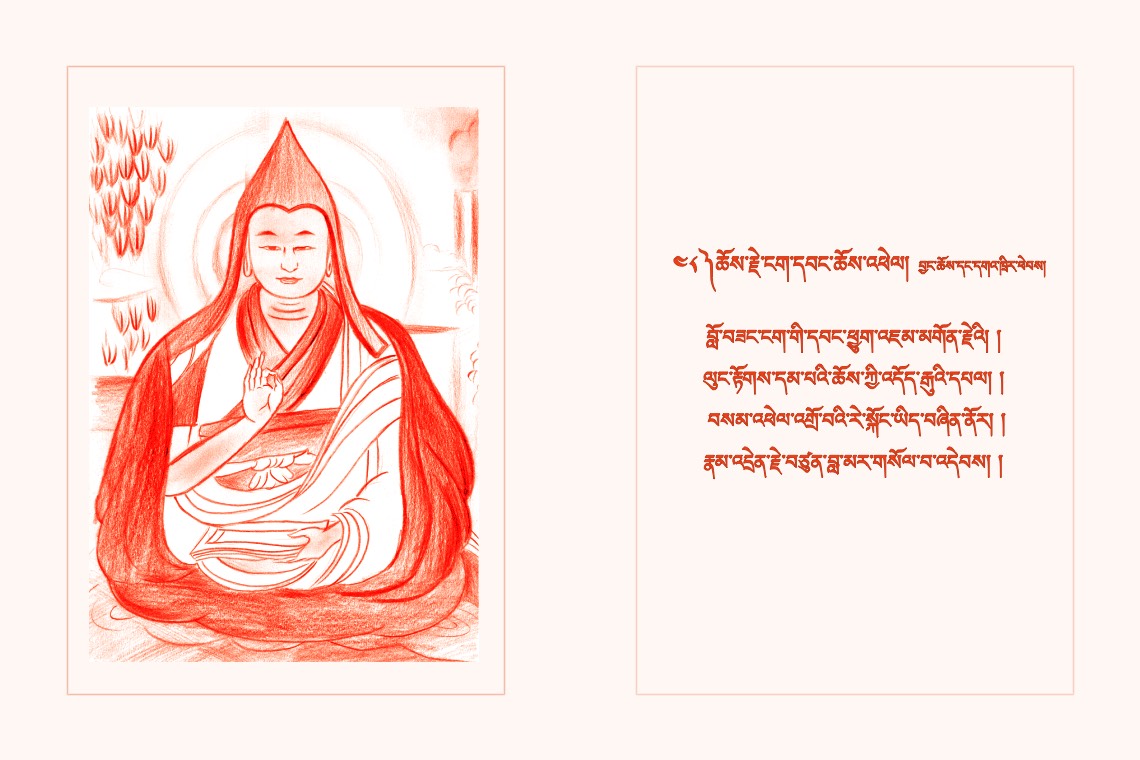 ༄༅༎ཆོས་རྗེ་ངག་དབང་ཆོས་འཕེལ། བྱང་ཆོས་དང་དགའ་ཁྲིར་ཕེབས།
བློ་བཟང་ངག་གི་དབང་ཕྱུག་འཇམ་མགོན་རྗེའི། །
ལུང་རྟོགས་དམ་པའི་ཆོས་ཀྱི་འདོད་རྒུའི་དཔལ། །
བསམ་འཕེལ་འགྲོ་བའི་རེ་སྐོང་ཡིད་བཞིན་ནོར། །
རྣམ་འདྲེན་རྗེ་བཙུན་བླ་མར་གསོལ་བ་འདེབས། །